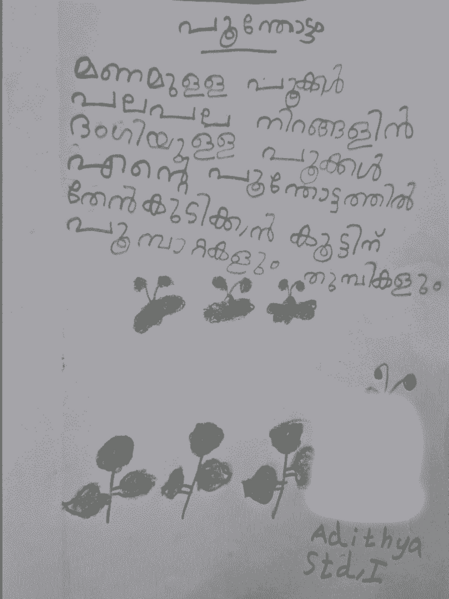 പൂന്തോട്ടം
മണമുള്ള പൂക്കൾ
പലപല നിറങ്ങളിൻ
ഭംഗിയുള്ള പൂക്കൾ
എന്റെ പൂന്തോട്ടത്തിൽ
തേൻകുടിക്കൻ കൂട്ടിന്
പൂമ്പാറ്റകളും തുമ്പികളും
Adithya
Std, I